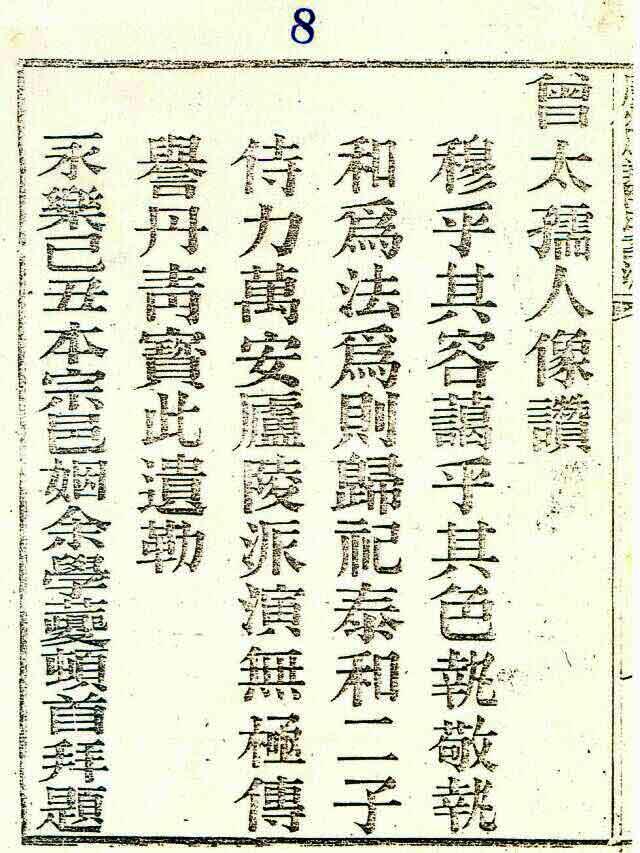 8
曾太孺人像讚
穆乎其容藹乎其色執敬執
和爲法爲則歸祀泰和二子
侍力萬安廬陵派演無極傳
譽丹靑寶此遺勒
永樂己丑本宗邑姻余學夔頓首拜題